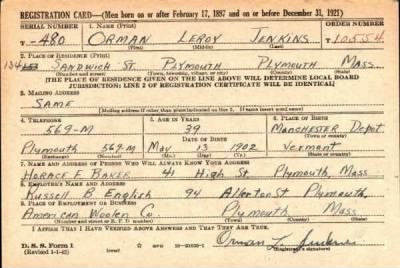 REGISTRATION CARD—(Men born on or after February 17, 1897 and on or before December 31, 1921)
SERIAL NUMBER 1. NAME (Print) ORDER NUMBER
T- 480 ORMAN LEROY JENKINS T 10554
(First) (Middle) (Last)
2. PLACE OF RESIDENCE (Print)
134 SANDWICH ST. PLYMOUTH PLYMOUTH MASS.
(Number and street) (Town, township, village, or city) (County) (State)
[THE PLACE OF RESIDENCE GIVEN ON THE LINE ABOVE WILL DETERMINE LOCAL BOARD
JURISDICTION; LINE 2 OF REGISTRATION CERTIFICATE WILL BE IDENTICAL]
3. MAILING ADDRESS
SAME
[Mailing address if other than place indicated on line 2. If same insert word same]
4. TELEPHONE 5. AGE IN YEARS 6. PLACE OF BIRTH
569-M 39 MANCHESTER Depot
DATE OF BIRTH (Town or county)
Plymouth 569-M May 13 1902 Vermont
(Exchange) (Number) (Mo.) (Day) (Yr.) (State or country)
7. NAME AND ADDRESS OF PERSON WHO WILL ALWAYS KNOW YOUR ADDRESS
HORACE F. BAKER 41 High St Plymouth, Mass
8. EMPLOYER'S NAME AND ADDRESS
Russell B. English 94 Allerton St Plymouth,
9. PLACE OF EMPLOYMENT OR BUSINESS
American Woolen Co. Plymouth Mass
(Number and street or R. F. D. number) (Town) (County) (State)
I AFFIRM THAT I HAVE VERIFIED ABOVE ANSWERS AND THAT THEY ARE TRUE.
D. S. S. Form 1
(Revised 1-1-42) (over) Orman L. Jenkins
(Registrant's signature)